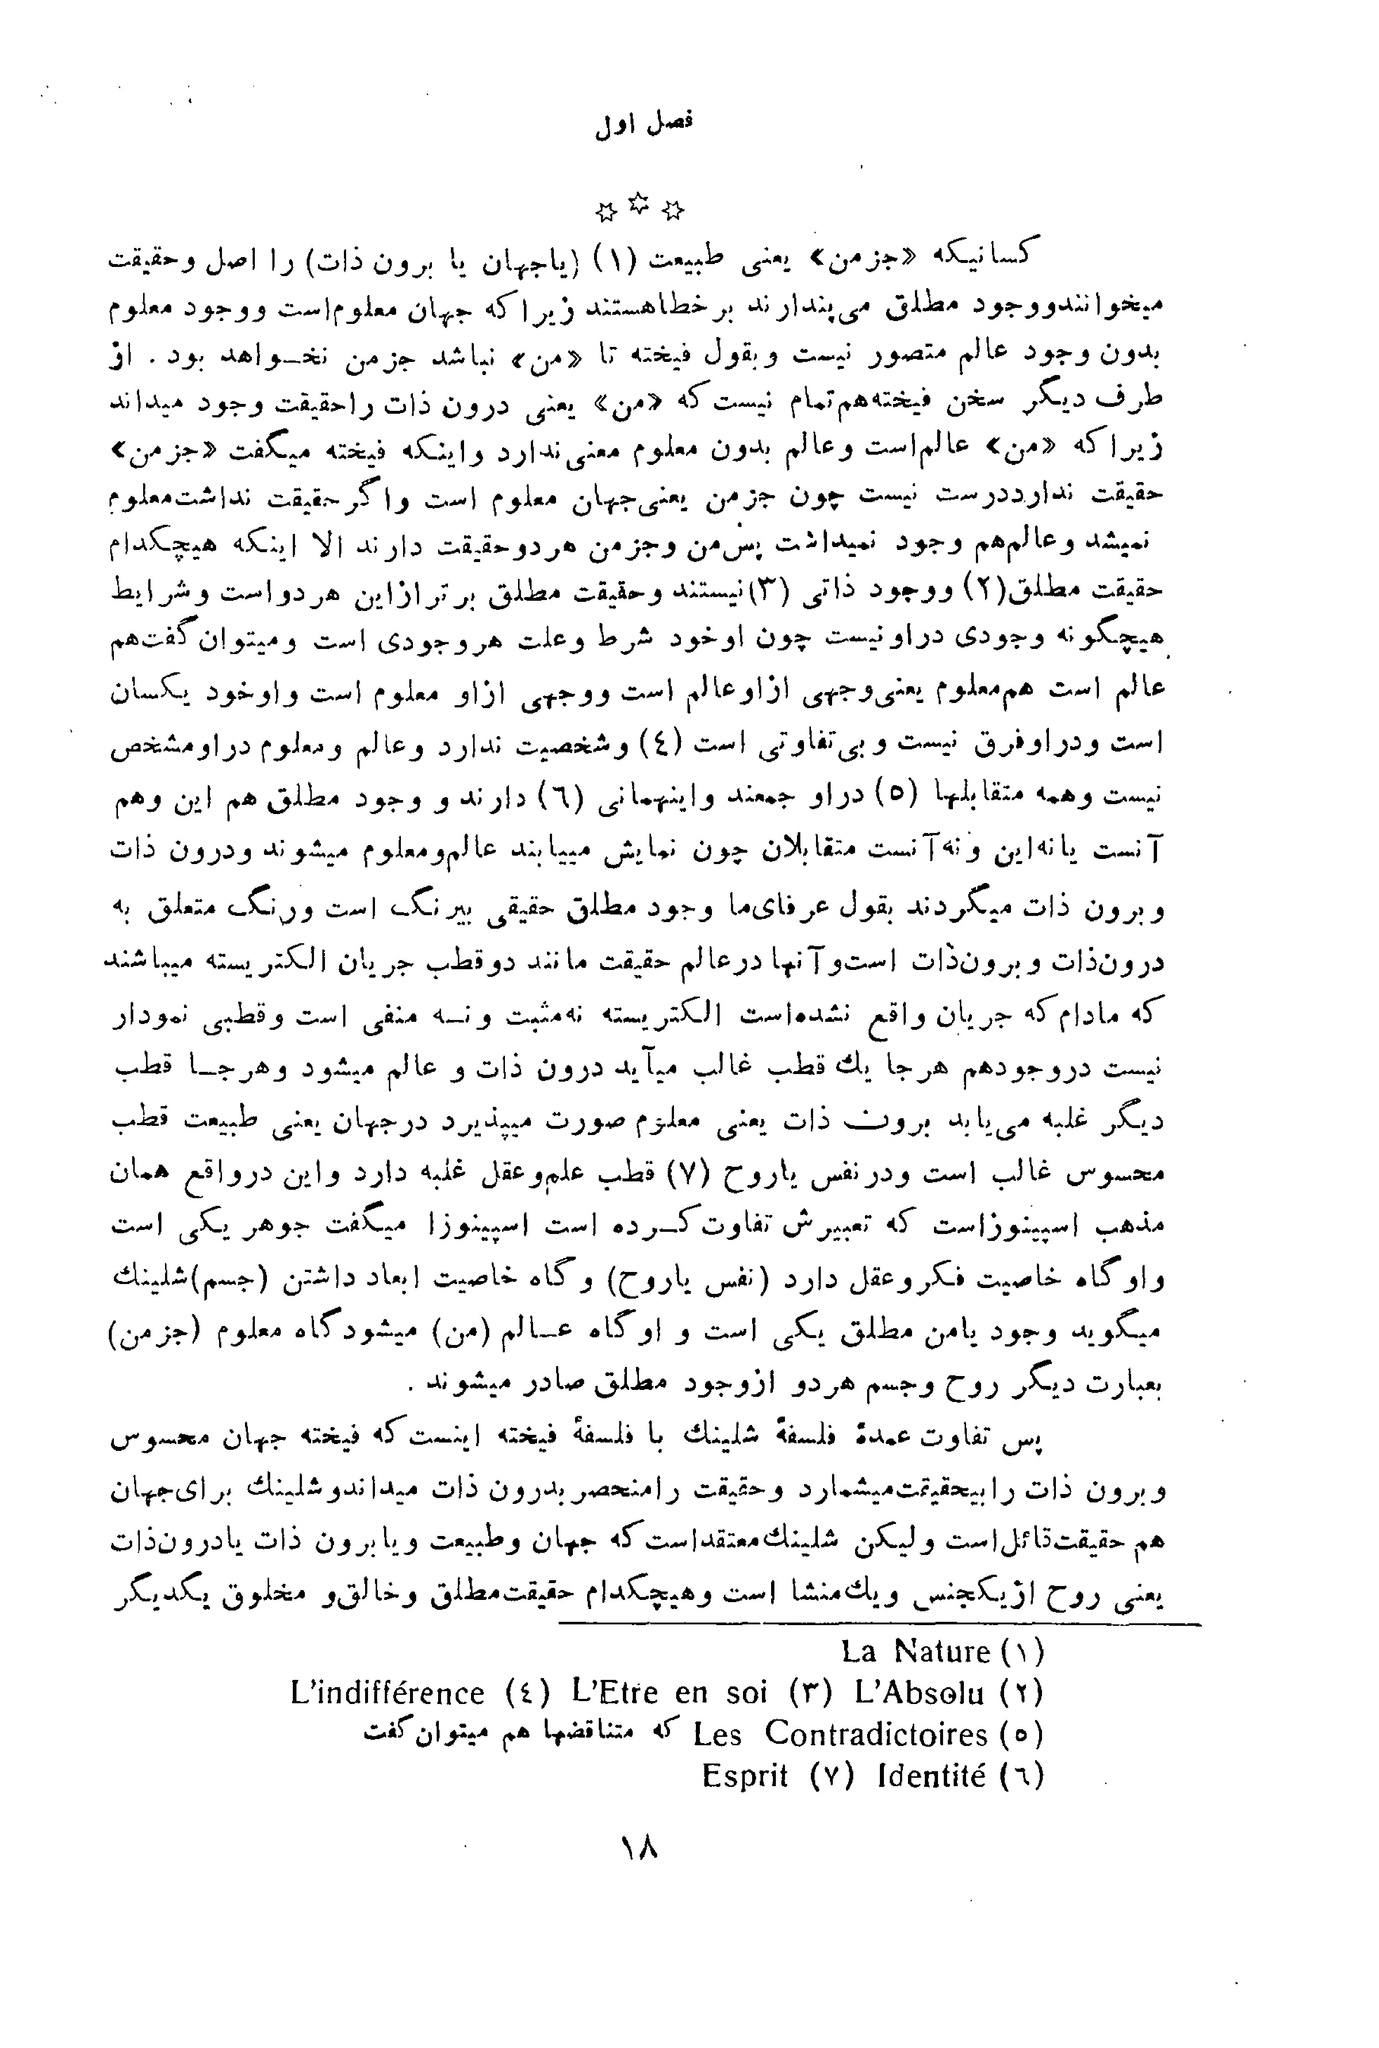 فصل اول
✡ ✡ ✡
کسانیکه «جز من» یعنی طبیعت (۱) (یا جهان یا برون ذات) را اصل و حقیقت
میخوانند و وجود مطلق می‌پندارند بر خطا هستند زیرا که جهان معلوم است و وجود معلوم
بدون وجود عالم متصور نیست و بقول فیخته تا «من» نباشد جز من نخـواهد بود . از
طرف دیگر سخن فیخته هم تمام نیست که «من» یعنی درون ذات را حقیقت وجود میداند
زیرا که «من» عالم است و عالم بدون معلوم معنی ندارد و اینکه فیخته میگفت «جز من»
حقیقت ندارد درست نیست چون جز من یعنی جهان معلوم است و اگر حقیقت نداشت معلوم
نمیشد و عالم هم وجود نمیداشت پس من و جز من هر دو حقیقت دارند الا اینکه هیچکدام
حقیقت مطلق(۲) و وجود ذاتی (۳) نیستند و حقیقت مطلق برتر از این هر دو است و شرایط
هیچگونه وجودی در او نیست چون او خود شرط و علت هر وجودی است و میتوان گفت هم
عالم است هم معلوم یعنی وجهی از او عالم است و وجهی از او معلوم است و او خود یکسان
است و در او فرق نیست و بی تفاوتی است (٤) و شخصیت ندارد و عالم و معلوم در او مشخص
نیست و همه متقابلها (۵) در او جمعند و اینهمانی (٦) دارند و وجود مطلق هم این و هم
آنست یا نه این و نه آنست متقابلان چون نمایش مییابند عالم و معلوم میشوند و درون ذات
و برون ذات میگردند بقول عرفای ما وجود مطلق حقیقی بیرنگ است و رنگ متعلق به
درون ذات و برون ذات است و آنها در عالم حقیقت مانند دو قطب جریان الکتریسته میباشند
که مادام که جریان واقع نشده است الکتریسته نه مثبت و نـه منفی است و قطبی نمودار
نیست در وجود هم هر جا یك قطب غالب میآید درون ذات و عالم میشود و هر جـا قطب
دیگر غلبه می‌یابد برون ذات یعنی معلوم صورت میپذیرد در جهان یعنی طبیعت قطب
محسوس غالب است و در نفس یا روح (۷) قطب علم و عقل غلبه دارد و این در واقع همان
مذهب اسپینوز است که تعبیرش تفاوت کـرده است اسپینوزا میگفت جوهر یکی است
و او گاه خاصیت فکر و عقل دارد (نفس یا روح) و گاه خاصیت ابعاد داشتن (جسم) شلینك
میگوید وجود یا من مطلق یکی است و او گاه عـالم (من) میشود گاه معلوم (جز من)
بعبارت دیگر روح و جسم هر دو از وجود مطلق صادر میشوند .
پس تفاوت عمدۀ فلسفۀ شلینك با فلسفۀ فیخته اینست که فیخته جهان محسوس
و برون ذات را بیحقیقت میشمارد و حقیقت را منحصر بدرون ذات میداند و شلینك برای جهان
هم حقیقت قائل است ولیکن شلینك معتقد است که جهان و طبیعت و یا برون ذات یا درون ذات
یعنی روح از یکجنس و یك منشا است و هیچکدام حقیقت مطلق و خالق و مخلوق یکدیگر
(۱) La Nature
(۲) L'Absolu (۳) L'Etre en soi (٤) L'indifférence
(۵) Les Contradictoires که متناقضها هم میتوان گفت
(٦) Identité (۷) Esprit
۱۸